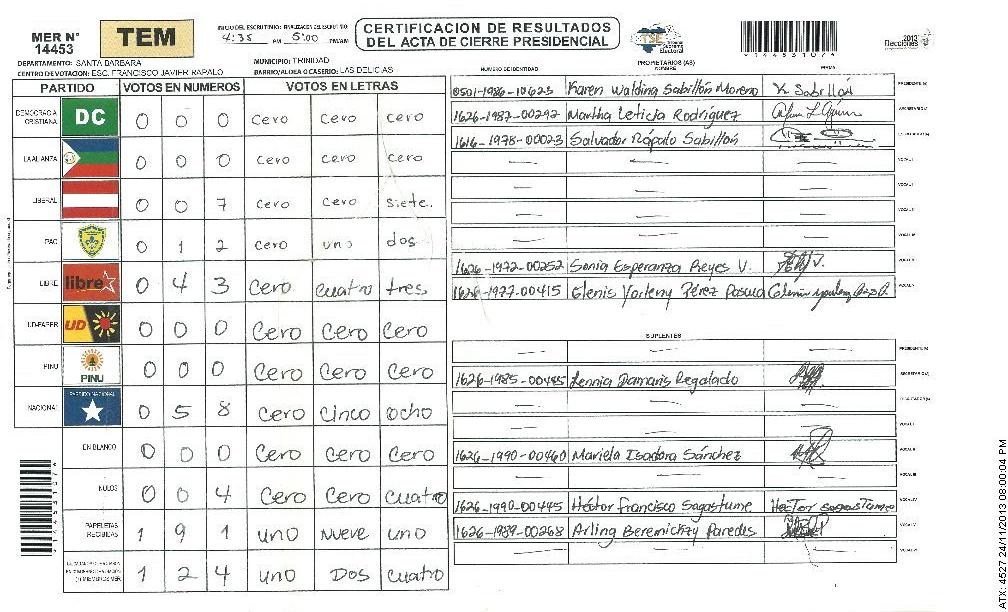 MER N° 14453
TEM
INICIO DEL ESCRUTINIO: FINALIZACION DEL ESCRUTINIO:
4:35 PM 5:00 PM/AM
CERTIFICACION DE RESULTADOS
DEL ACTA DE CIERRE PRESIDENCIAL
TSE
Supremo Electoral
2013
Elecciones
DEPARTAMENTO: SANTA BARBARA
MUNICIPIO: TRINIDAD
CENTRO DE VOTACION: ESC. FRANCISCO JAVIER RAPALO
BARRIO/ALDEA O CASERIO: LAS DELICIAS
PARTIDO VOTOS EN NUMEROS VOTOS EN LETRAS
DEMOCRACIA CRISTIANA DC 0 0 0 cero cero cero
0 0 0 cero cero cero
LIBERAL 0 0 7 cero cero siete.
PAC 0 1 2 cero uno dos
LIBRE libre 0 4 3 Cero cuatro tres
UD-FAPER UD 0 0 0 Cero Cero Cero
PINU PINU 0 0 0 Cero Cero Cero
NACIONAL PARTIDO NACIONAL 0 5 8 Cero Cinco ocho
EN BLANCO 0 0 0 Cero Cero Cero
NULOS 0 0 4 Cero Cero Cuatro
PAPELETAS RECIBIDAS 1 9 1 uno Nueve uno
1 2 4 uno Dos Cuatro
NUMERO DE IDENTIDAD PROPIETARIOS (AS) NOMBRE FIRMA
0501-1986-10623 Karen Walding Sabillón Moreno K Sabillón PRESIDENTE (A)
1626-1987-00292 Martha Leticia Rodríguez SECRETARIO (A)
1616-1978-00023 Salvador Rápalo Sabillón
VOCAL I
VOCAL II
VOCAL III
1626-1972-00252 Sonia Esperanza Reyes V.
1626-1977-00415 Glenis Yorleny Pérez Pascua
SUPLENTES
PRESIDENTE (A)
1626-1985-00485 Lennia Damaris Regalado SECRETARIO (A)
VOCAL I
1626-1990-00460 Mariela Isadora Sánchez VOCAL II
VOCAL III
1626-1990-00445 Héctor Francisco Sagastume Hector sagastume VOCAL IV
1626-1989-00268 Arling Beremichzy Paredes VOCAL V
VOCAL VI
ATX: 4527 24/11/2013 08:00:04 PM